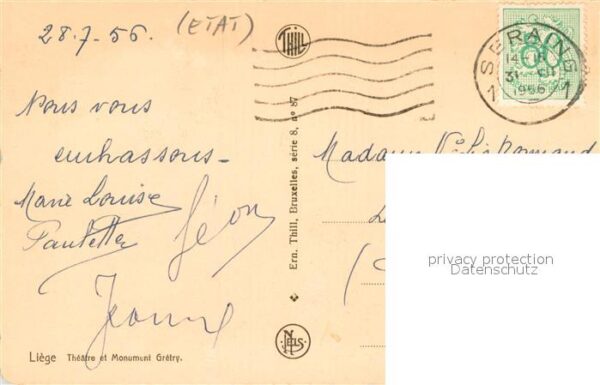 28.7-56. (ETAT)
THILL
SERAING
14
31 VII
1956
1 1
Nous vous
embrassons -
Marie Louise
Paulette Léon
Jeanne
Madame
Ern. Thill, Bruxelles, série 8, no 87
NELS
Liège Théâtre et Monument Grétry.
privacy protection
Datenschutz